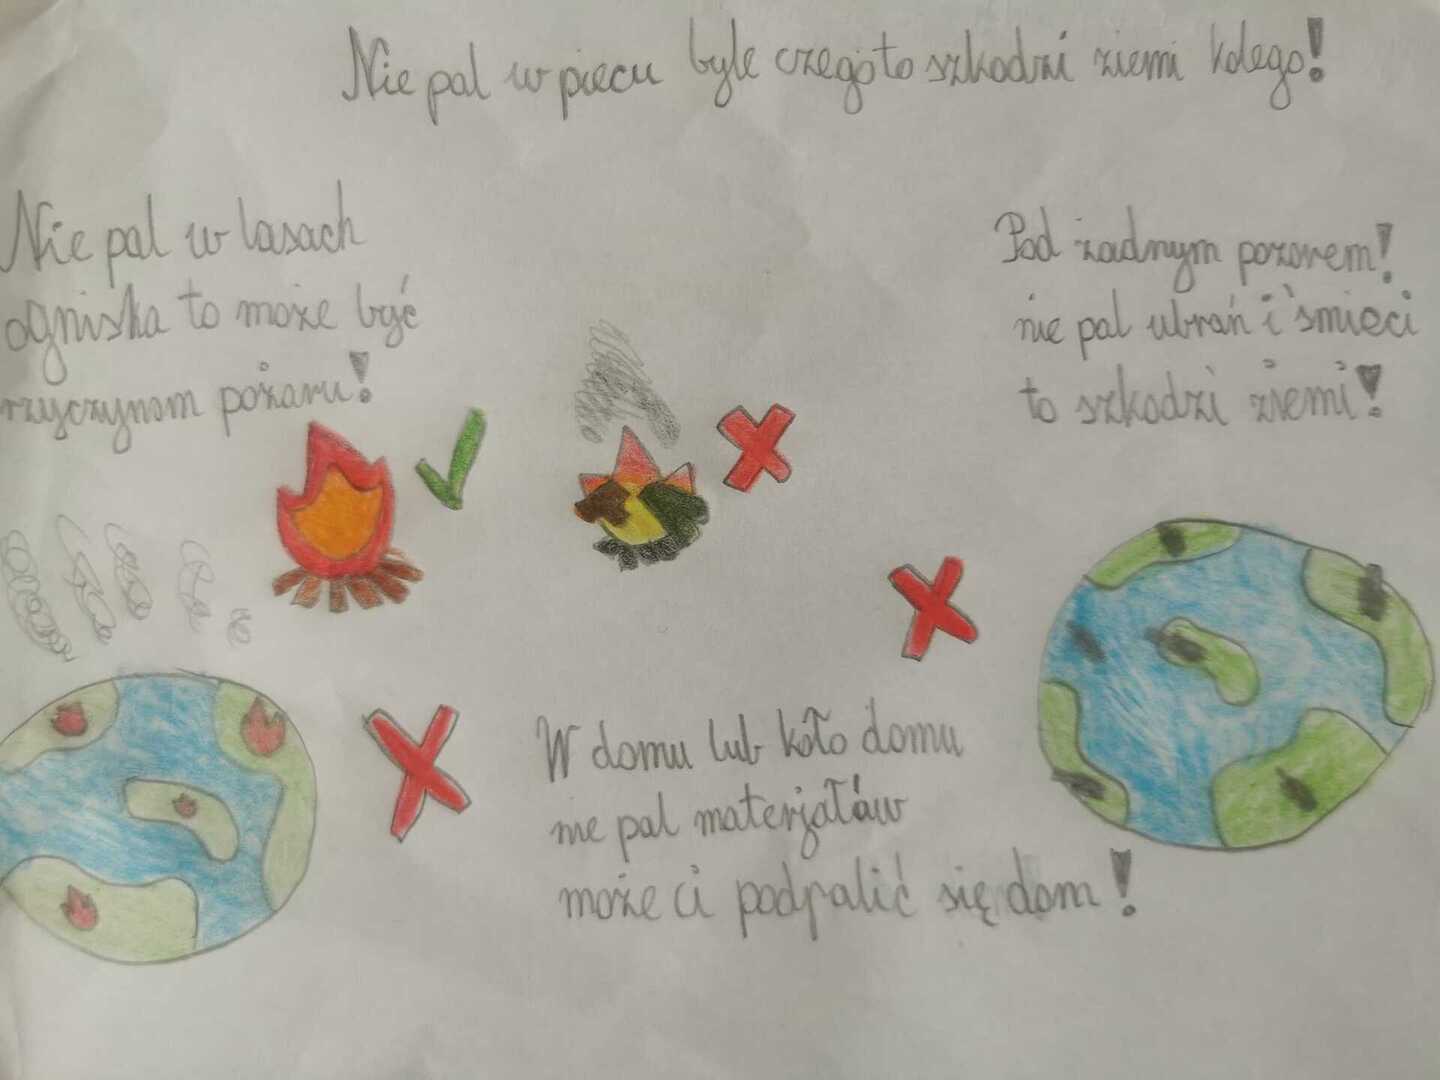 Nie pal w piecu byle czego to szkodzi ziemi kolego!
Nie pal w lasach
ogniska to może być
rzyczynom pożaru!
Pod żadnym pozorem!
nie pal ubrań i śmieci
to szkodzi ziemi!
W domu lub koło domu
nie pal materjałów
może ci podpalić się dom!